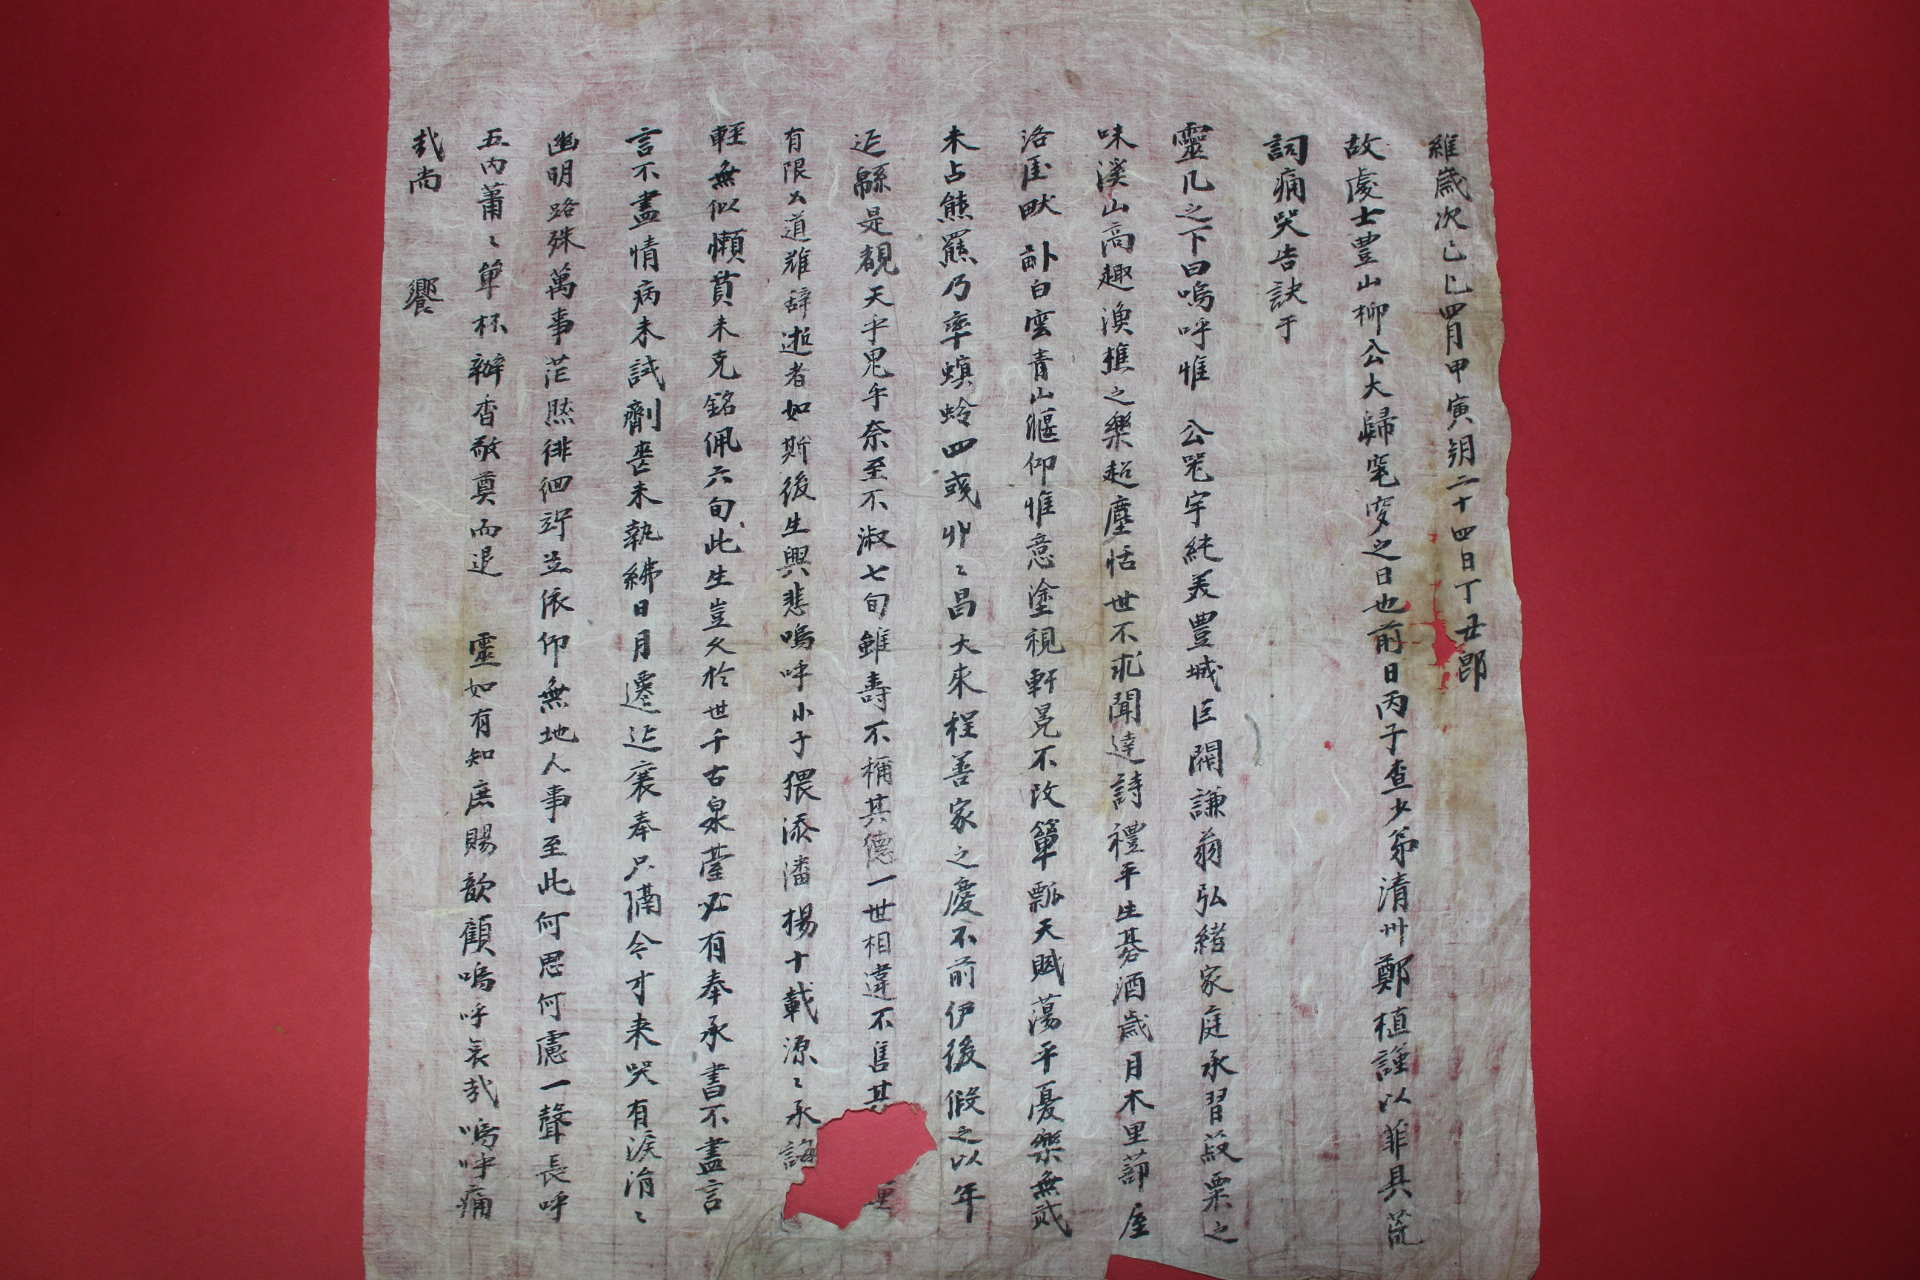 維歲次己巳四月甲寅朔二十四日丁丑卽
故處士豊山柳公大歸窀穸之日也前日丙子査少弟淸州鄭植謹以菲具荒
詞痛哭告訣于
靈几之下曰嗚呼惟 公器宇純美豊城巨閥謙翁弘緖家庭承習菽粟之
味溪山高趣漁樵之樂超塵恬世不求聞達詩禮平生碁酒歲月木里蔀屋
洛厓畎畝白雲靑山偃仰惟意塗視軒冕不改簞瓢天賦蕩平憂樂無貳
未占熊羆乃率螟蛉四彧丱〻昌大來程善家之慶不前伊後假之以年
迱緜是覩天乎鬼乎奈至不淑七旬雖壽不稱其德一世相違不售其
有限公道難辭逝者如斯後生興悲嗚呼小子猥添潘楊十載源〻承誨
輕無似懶贫未克銘佩六旬此生豈久於世千古泉臺必有奉承書不盡言
言不盡情病未試劑喪未執紼日月遷迱襄奉只隔今才来哭有淚涓〻
幽明路殊萬事茫然徘徊竚立依仰無地人事至此何思何慮一聲長呼
五內蕭〻單杯辦香敬奠而退 靈如有知庶賜歆顧嗚呼哀哉嗚呼痛
哉尚 饗